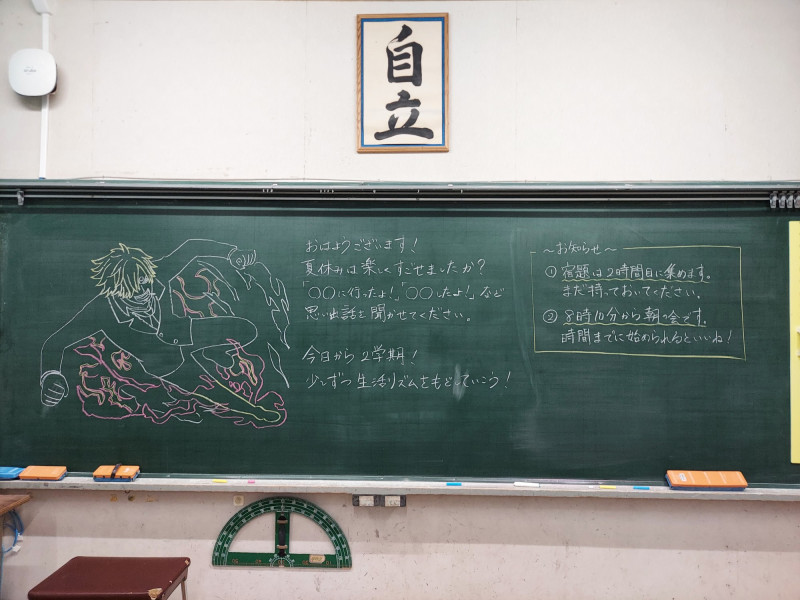 自立
おはようございます!
夏休みは楽しくすごせましたか?
「〇〇に行ったよ!」「〇〇したよ!」など
思い出話を聞かせてください。
今日から2学期!
少しずつ生活リズムをもどしていこう!
～お知らせ～
① 宿題は2時間目に集めます。
まだ持っておいてください。
② 8時10分から朝の会です。
時間までに始められるといいね!